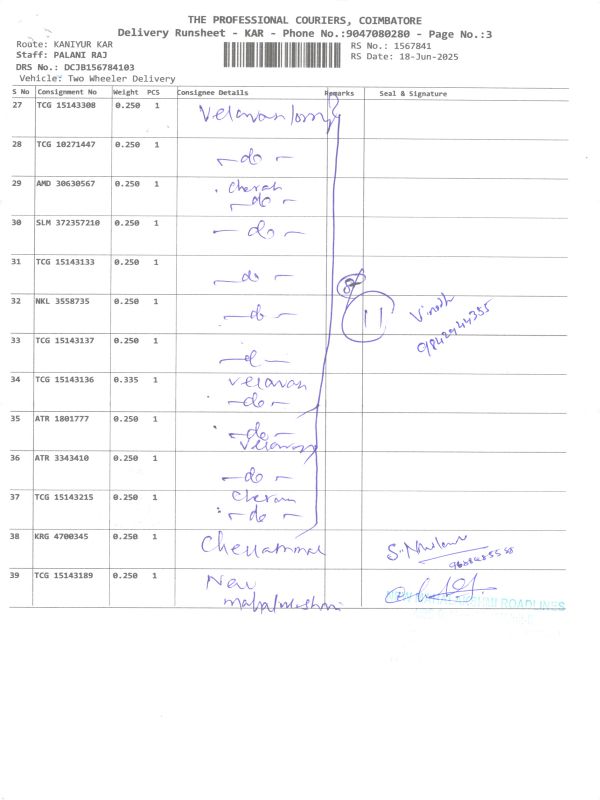 THE PROFESSIONAL COURIERS, COIMBATORE
Delivery Runsheet - KAR - Phone No.:9047080280 - Page No.:3
Route: KANIYUR KAR RS No.: 1567841
Staff: PALANI RAJ RS Date: 18-Jun-2025
DRS No.: DCJB156784103
Vehicle: Two Wheeler Delivery
S No Consignment No Weight PCS Consignee Details Remarks Seal & Signature
27 TCG 15143308 0.250 1 Velavan
28 TCG 10271447 0.250 1 — do —
29 AMD 30630567 0.250 1 Cheran
— do —
30 SLM 372357210 0.250 1 — do —
31 TCG 15143133 0.250 1 — do —
32 NKL 3558735 0.250 1 — do — 11 Vinoth
9842944355
33 TCG 15143137 0.250 1 — d —
34 TCG 15143136 0.335 1 Velavan
— do —
35 ATR 1801777 0.250 1 — do —
Velavan
36 ATR 3343410 0.250 1 — do —
37 TCG 15143215 0.250 1 Cheran
— do —
38 KRG 4700345 0.250 1 Chellammal
39 TCG 15143189 0.250 1 New
ROADLINES